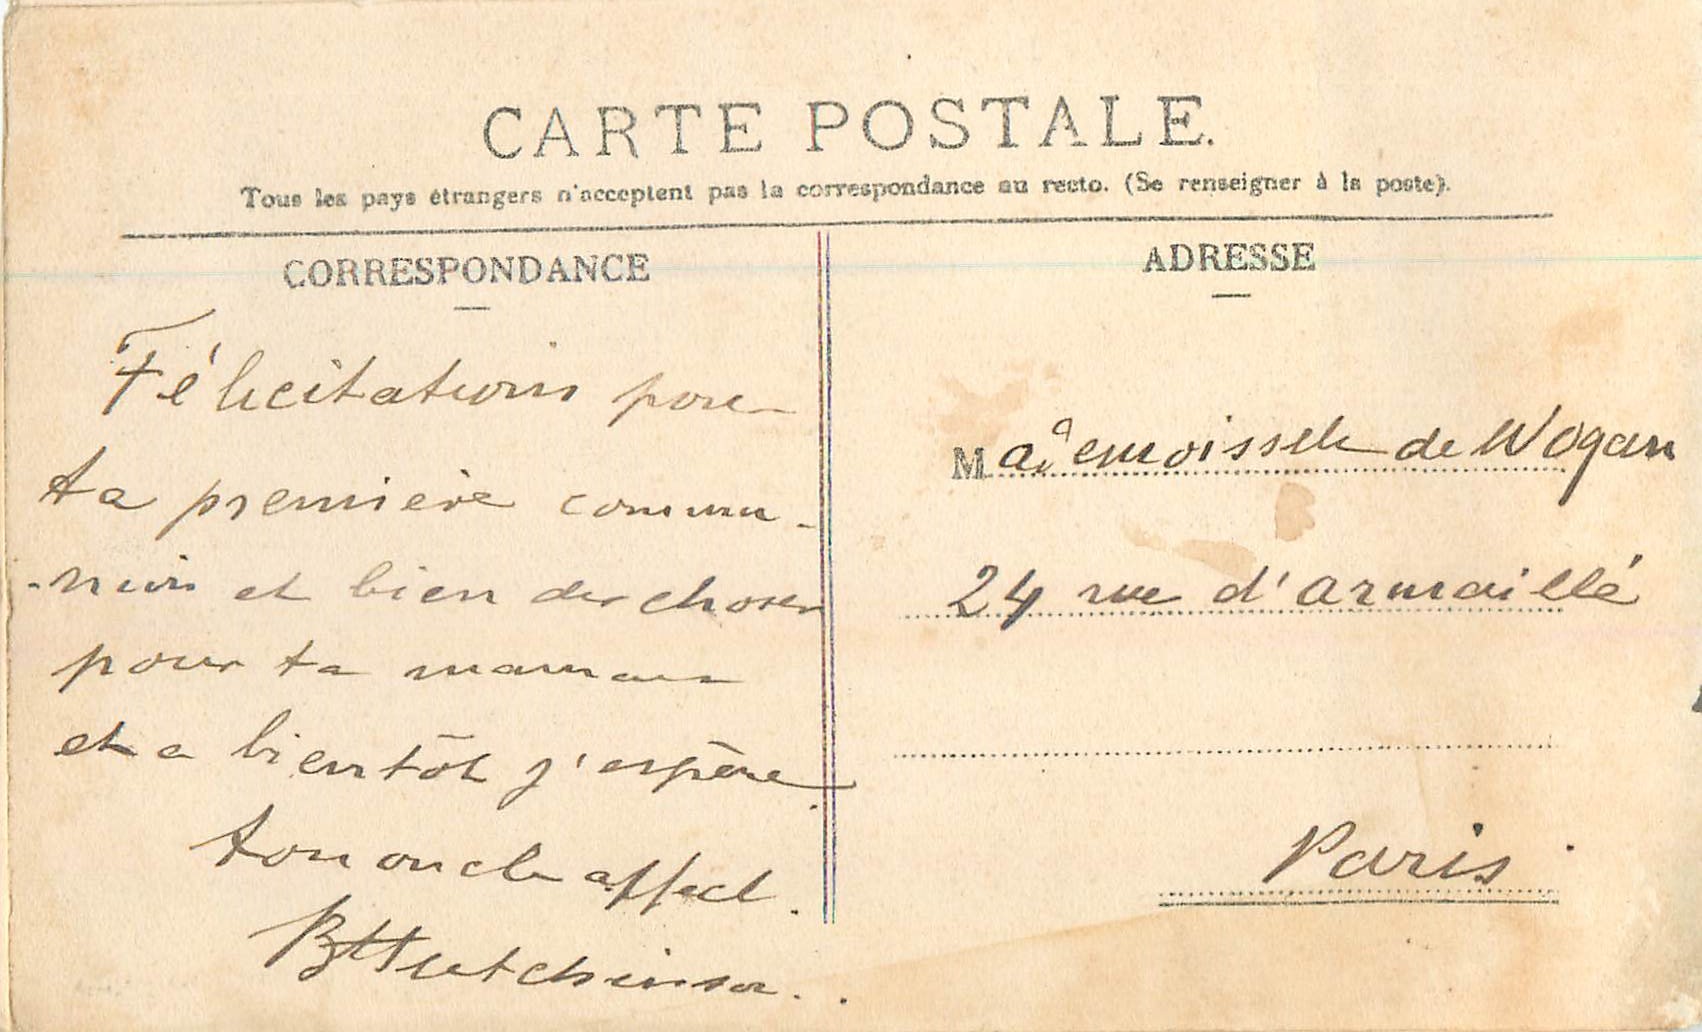 CARTE POSTALE.
Tous les pays étrangers n'acceptent pas la correspondance au recto. (Se renseigner à la poste).
CORRESPONDANCE
Félicitations pour
ta première commu-
-nion et bien des choses
pour ta maman
et a bientôt j'espère.
ton oncle affect.
B Hutchinson.
ADRESSE
Mademoisselle de Wogan
24 rue d'Armaillé
Paris